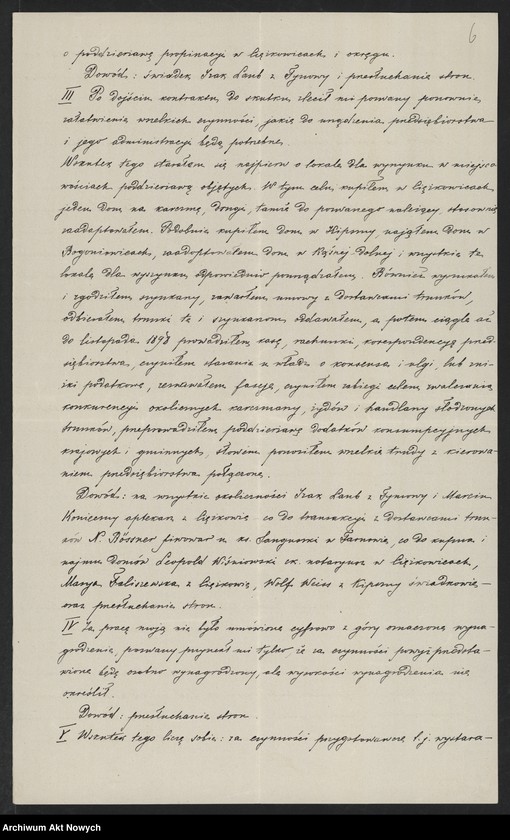 6
o poddzierżawę propinacyi w Ciężkowicach i okręgu.
Dowód: świadek Izak Laub z Tymowy i przesłuchanie stron.
III Po dojściu kontraktu do skutku zlecił mi pozwany ponownie
załatwienie wszelkich czynności, jakie do urządzenia przedsiębiorstwa
i jego administracyi będą potrzebne.
Wskutek tego starałem się najpierw o lokale dla wyszynku w miejsco
wościach poddzierżawą objętych. W tym celu kupiłem w Ciężkowicach
jeden dom na karczmę, drugi, tamże do pozwanego należący, stosownie
zaadoptowałem. Podobnie kupiłem dom w Kipsznej, nająłem dom w
Bogoniowicach, zaadoptowałem dom w Kąśnej Dolnej i wszystkie te
lokale dla wyszynku odpowiednio pourządzałem. Również wyszukałem
i zgodziłem szynkarzy, zawarłem umowy z dostawcami trunków,
odbierałem trunki te i szynkarzom oddawałem, a potem ciągle aż
do listopada 1898 prowadziłem kasę, rachunki, korespondencyę przed
siębiorstwa, czyniłem starania u władz o konsensa i ulgi, lub zni-
żki podatkowe, zeznawałem fassye, czyniłem zabiegi celem zwalczenia
konkurencyi okolicznych karczmarzy, żydów i handlarzy słodzonych
trunków, przeprowadziłem poddzierżawę dodatków konsumpcyjnych
krajowych i gminnych, słowem ponosiłem wszelkie trudy z kierowa-
niem przedsiębiorstwa połączone.
Dowód: na wszystkie okoliczności Izak Laub z Tymowy i Marcin
Konieczny aptekarz z Ciężkowic, co do transakcyi z dostawcami trun-
ków N. Rössner piwowar u ks. Sanguszki w Tarnowie, co do kupna i
najmu domów Leopold Wiśniowski ck. notaryusz w Ciężkowicach,
Marya Faliszewska z Ciężkowic, Wolf Weiss z Kipsznej świadkowie –
oraz przesłuchanie stron.
IV Za pracę moją nie było umówione cyfrowo z góry oznaczone wyna-
grodzenie, pozwany przyrzekł mi tylko że za czynności powyż przedsta-
wione będę osobno wynagrodzony, ale wysokości wynagrodzenia nie
określił.
Dowód: przesłuchanie stron.
V Wskutek tego liczę sobie: za czynności przygotowawcze t.j. wystara-
Archiwum Akt Nowych
www.aan.gov.pl